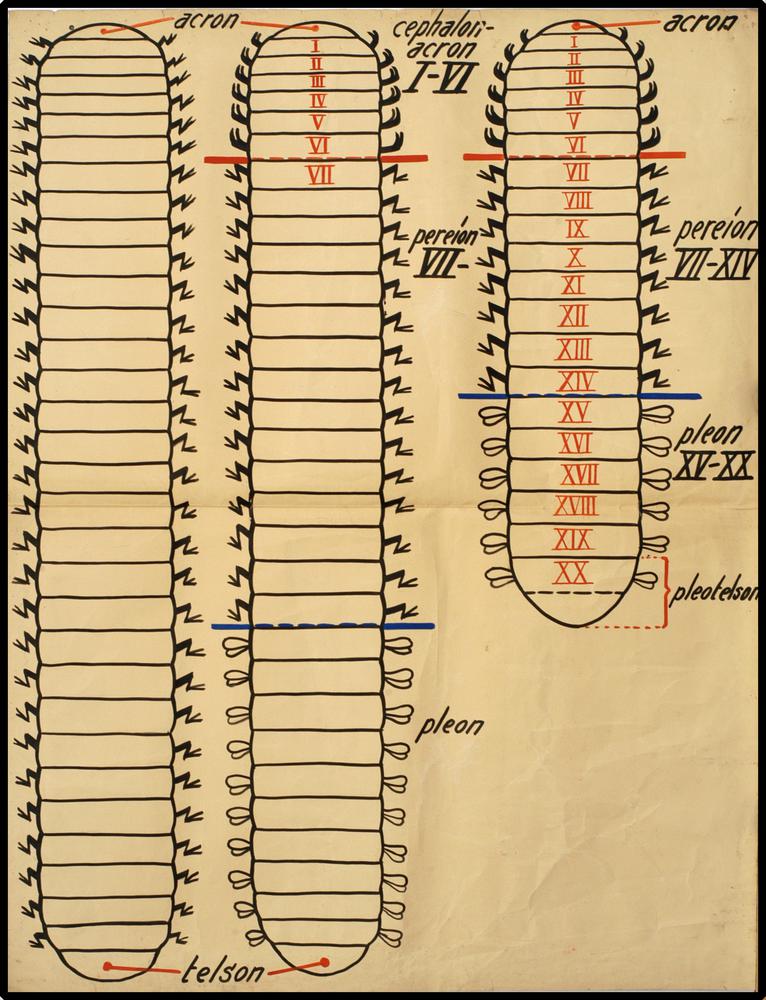 acron
cephalon-
acron
I-VI
acron
I
II
III
IV
V
VI
VII
pereion
VII-
I
II
III
IV
V
VI
VII
VIII
IX
X
XI
XII
XIII
XIV
XV
XVI
XVII
XVIII
XIX
XX
pereion
VII-XIV
pleon
XV-XX
pleotelson
pleon
telson